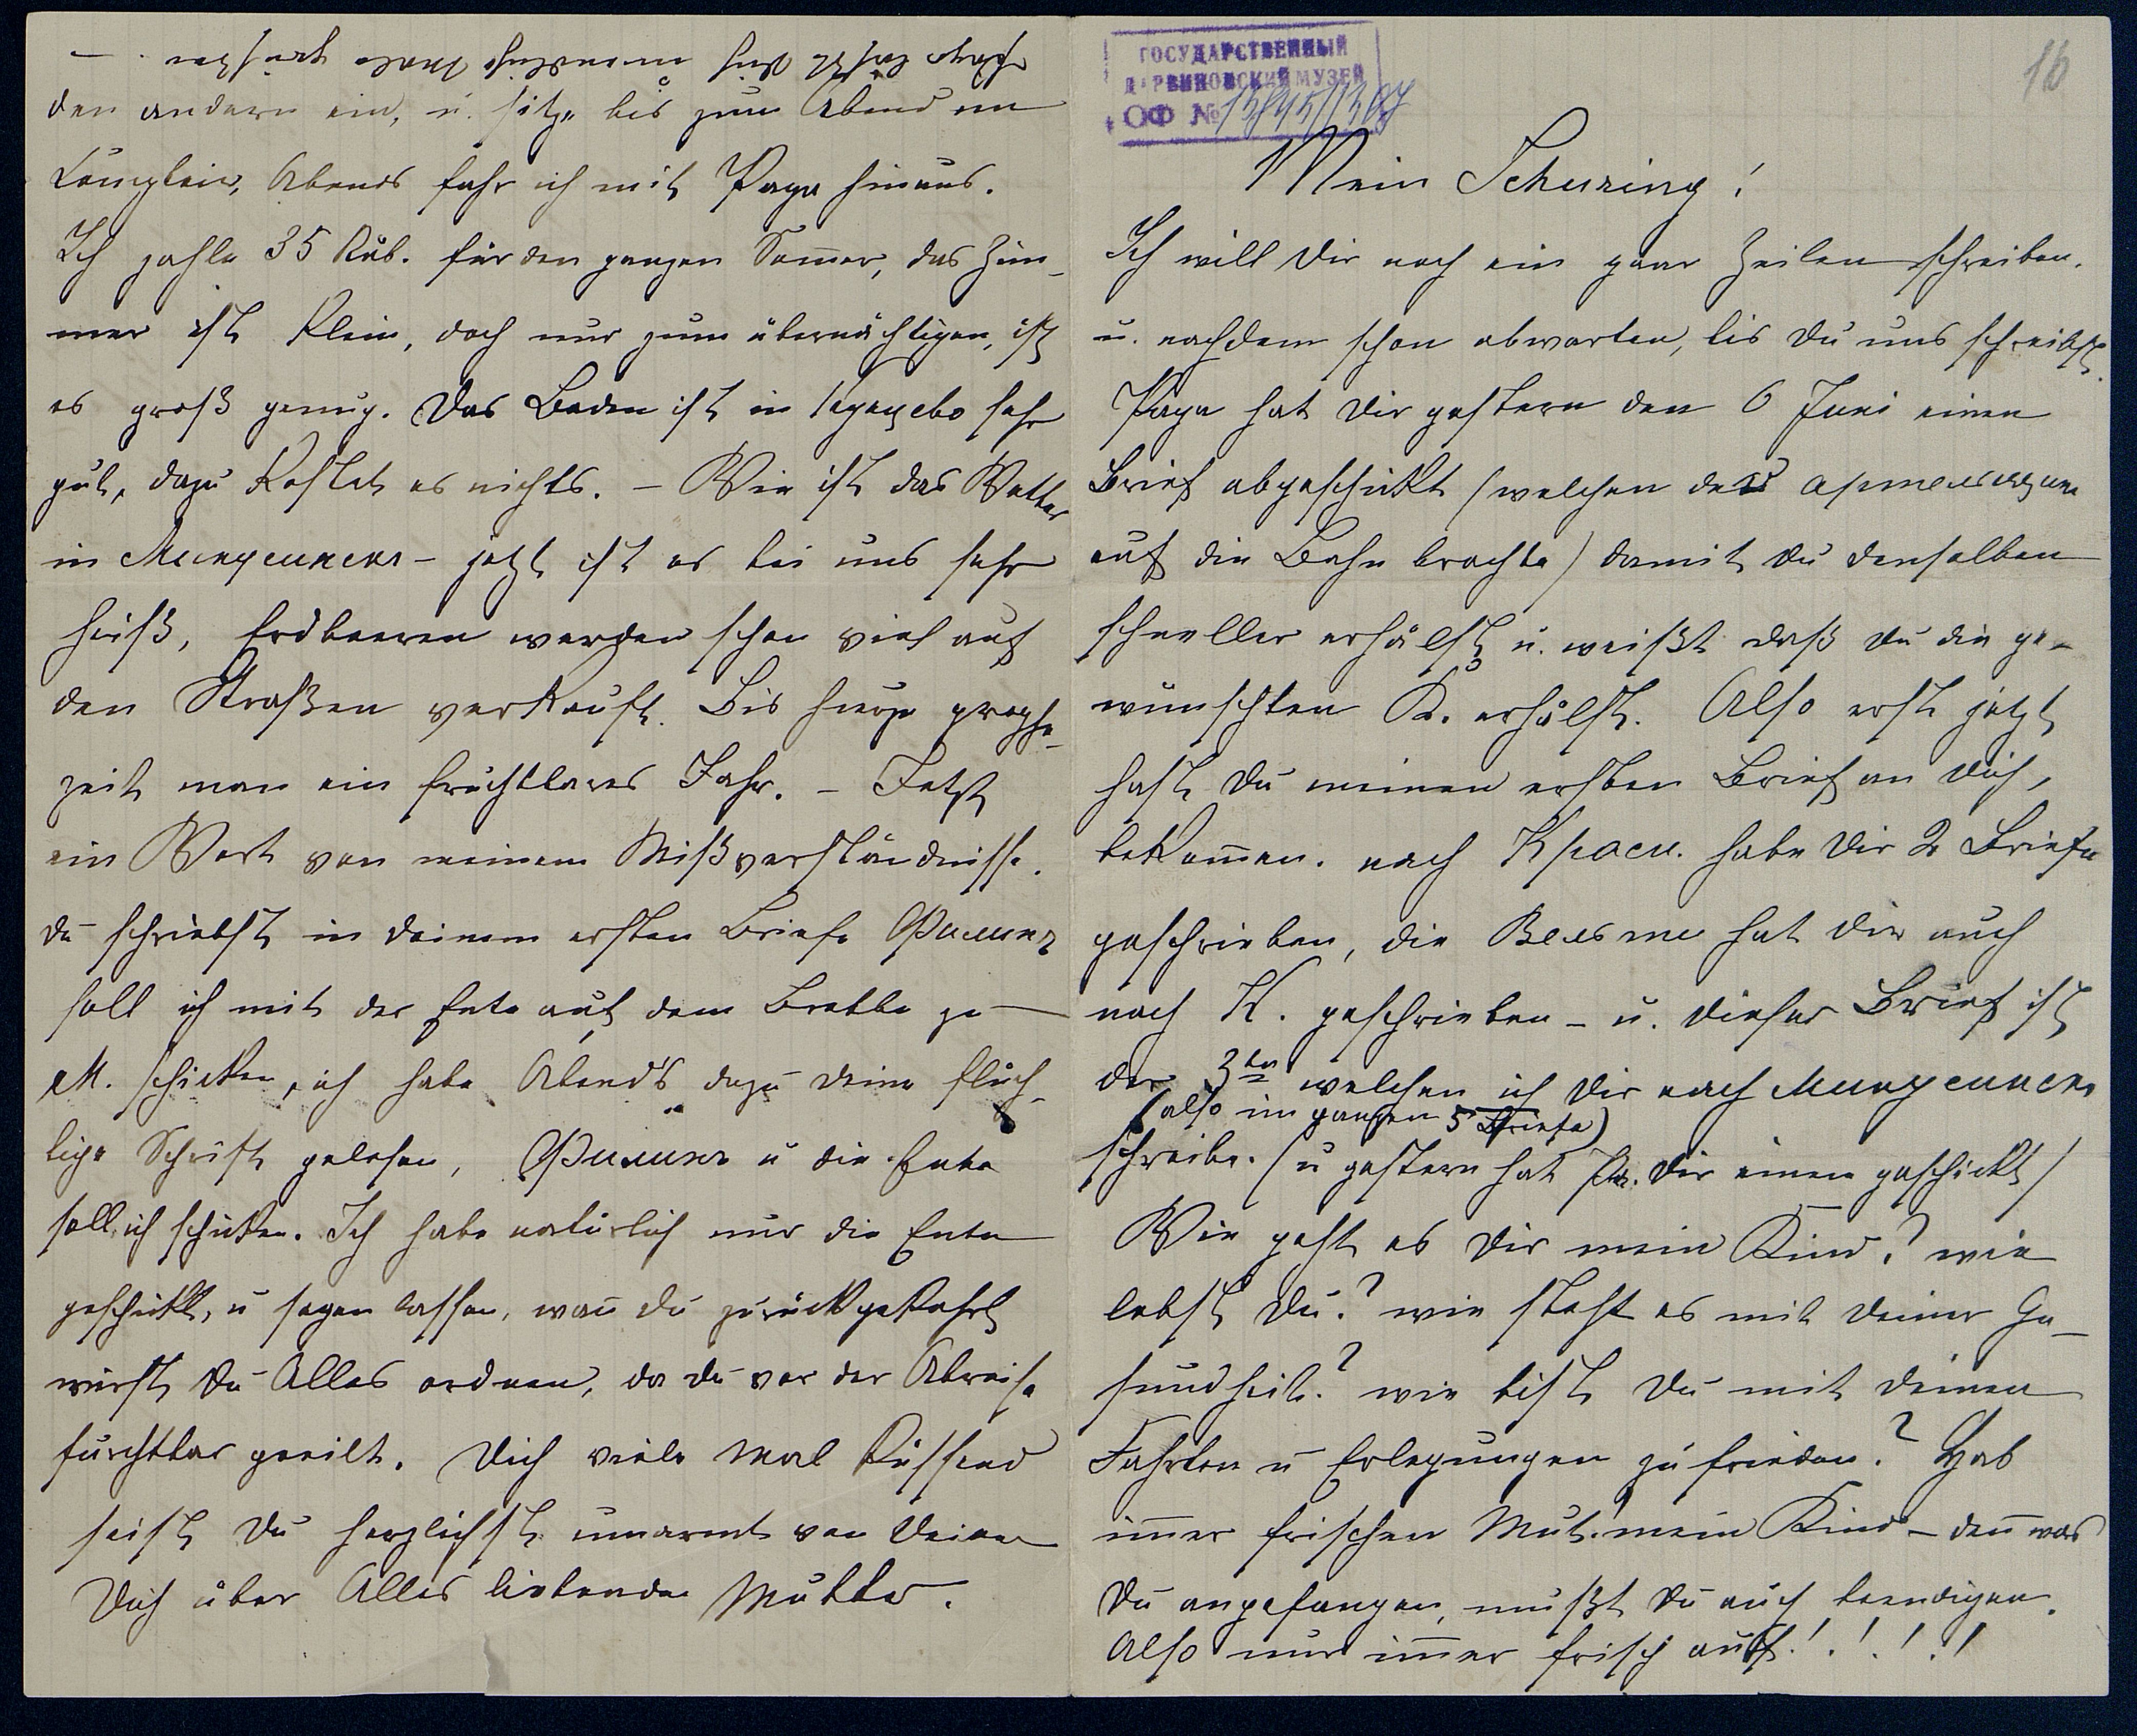 ГОСУДАРСТВЕННЫЙ
ДАРВИНОВСКИЙ МУЗЕЙ
ОФ №
16
Mein Schuring!
Ich will Dir noch ein paar Zeilen schreiben.
u. nachdem schon abwarten, bis Du uns schreibst.
Papa hat Dir gestern den 6 Juni einen
Brief abgeschickt (welchen der артельщик
auf die Bahn brachte) damit Du denselben
schneller erhälst u. weißt daß Du die ge-
wünschten K. erhälst. Also erst jetzt
hast Du meinen ersten Brief an Dich,
bekom̄en. nach Красн. habe Dir 2 Briefe
geschrieben, die hat Dir auch
nach K. geschrieben – u. dieser Brief ist
der 3te welchen ich Dir nach Минусинскъ
(also im ganzen 5 Briefe)
schreibe. (u gestern hat Pa. Dir einen geschickt)
Wie geht es Dir mein Kind? wie
lebst Du? wie steht es mit Deiner Ge-
sundheit? wie bist Du mit Deinen
Fahrten u Erlegungen zufrieden? Hab
im̄er frischen Mut! mein Kind – den̄ was
Du angefangen, mußt Du auch beendigen.
Also nur im̄er frisch auf!!!!!
den andern ein, u. sitze bis zum Abend im
Abends fahr ich mit Papa hinaus.
Ich zahle 35 Rub. für den ganzen Som̄er, das Zim-
mer ist klein, doch nur zum übernächtigen, ist
es groß genug. Das Baden ist in sehr
gut, dazu kostet es nichts. – Wie ist das Wetter
in Минусинскъ – jetzt ist es bei uns sehr
heiß, Erdbeeren werden schon viel auf
den Straßen verkauft. Bis hierzu prophe-
zeit man ein fruchtbares Jahr. – Jetzt
ein Wort von meinem Mißverständnisse.
Du schriebst in Deinem ersten Briefe Филинъ
soll ich mit der Ente auf dem Brette zu
M. schicken, ich habe Abends dazu Deine flüch-
tige Schrift gelesen, Филинъ u die Ente
soll ich schicken. Ich habe natürlich nur die Ente
geschickt, u sagen lassen, wan̄ Du zurückgekehrt
wirst Du Alles ordnen, da Du vor der Abreise
furchtbar geeilt. Dich viele Mal küssend
seist Du herzlichst umarmt von Deiner
Dich über Alles liebenden Mutter.